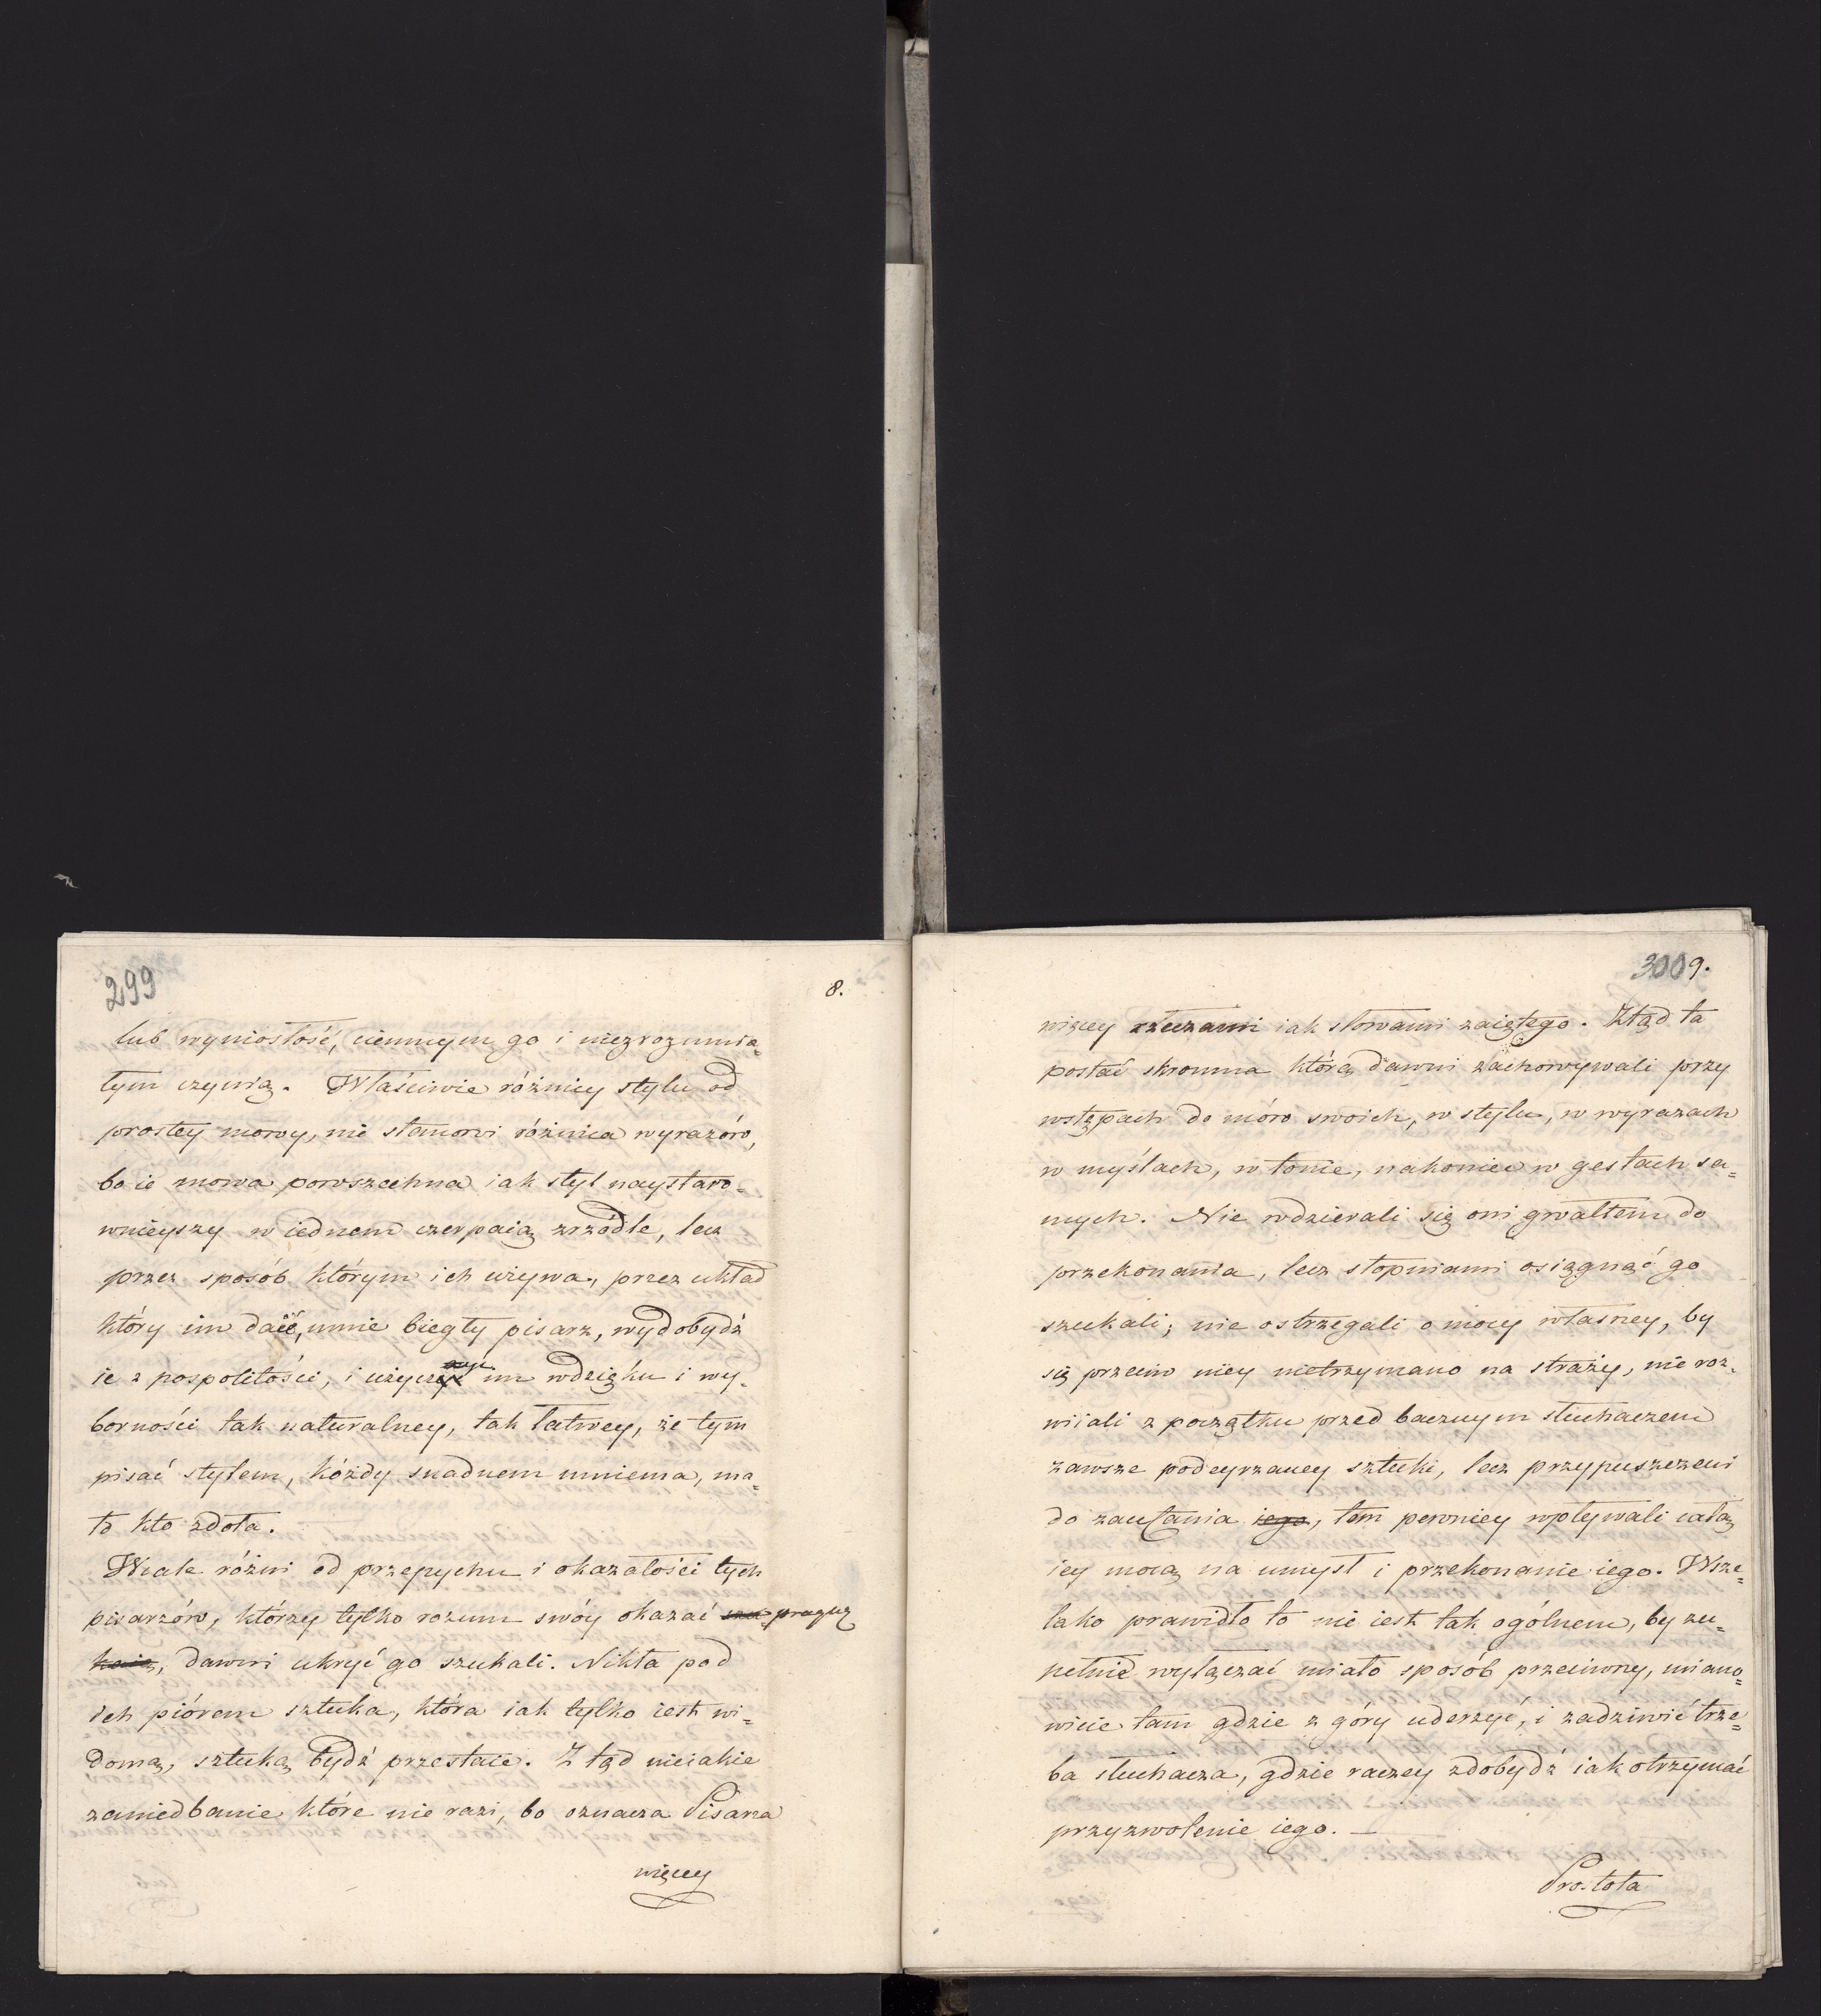 299
8.
lub wyniosłość, ciemnym go i niezrozumia=
łym czynią. Właściwie różnicy stylu od
prostey mowy, nie stanowi różnica wyrazów,
bo ie mowa powszechna iak styl naystaro=
wnieyszy w iednem czerpaią zrzódle, lecz
przez sposób którym ich używa, przez układ
który im daić, umie biegły pisarz, wydobydź
ie z pospolitości, i użyczyć im wdzięku i wy=
borności tak naturalney, tak łatwey, że tym
pisać stylem, kóżdy snadnem mniema, ma=
ło kto zdoła.
Wcale różni od przepychu i okazałości tych
pisarzów, którzy tylko rozum swóy okazać szu pragną
kaią, dawni ukryć go szukali. Nikła pod
ich piórem sztuka, która iak tylko iest wi=
domą, sztuką bydź przestaie. Z tąd nieiakie
zaniedbanie które nie razi, bo oznacza Pisarza
więcey
3009.
więcey rzeczami iak słowami zaiętego. Ztąd ta
postać skromna którą dawni zachowywali przy
wstępach do mów swoich, w stylu, w wyrazach
w myślach, w tonie, nakoniec w gestach sa=
mych. Nie wdzierali się oni gwałtem do
przekonania, lecz stopniami osiągnąć go
szukali; nie ostrzegali o mocy własney, by
się przeciw niey nietrzymano na straży, nie roz=
wiiali z początku przed bacznym słuchaczem
zawsze podeyrzaney sztuki, lecz przypuszczeni
do zaufania iego, tem pewniey wpływali całą
iey mocą na umysł i przekonanie iego. Wsze=
lako prawidło to nie iest tak ogólnem, by zu=
pełnie wyłączać miało sposób przeciwny, miano=
wicie tam gdzie z góry uderzyć, i zadziwić trze=
ba słuchacza, gdzie raczey zdobydź iak otrzymać
przyzwolenie iego. —
Prostota